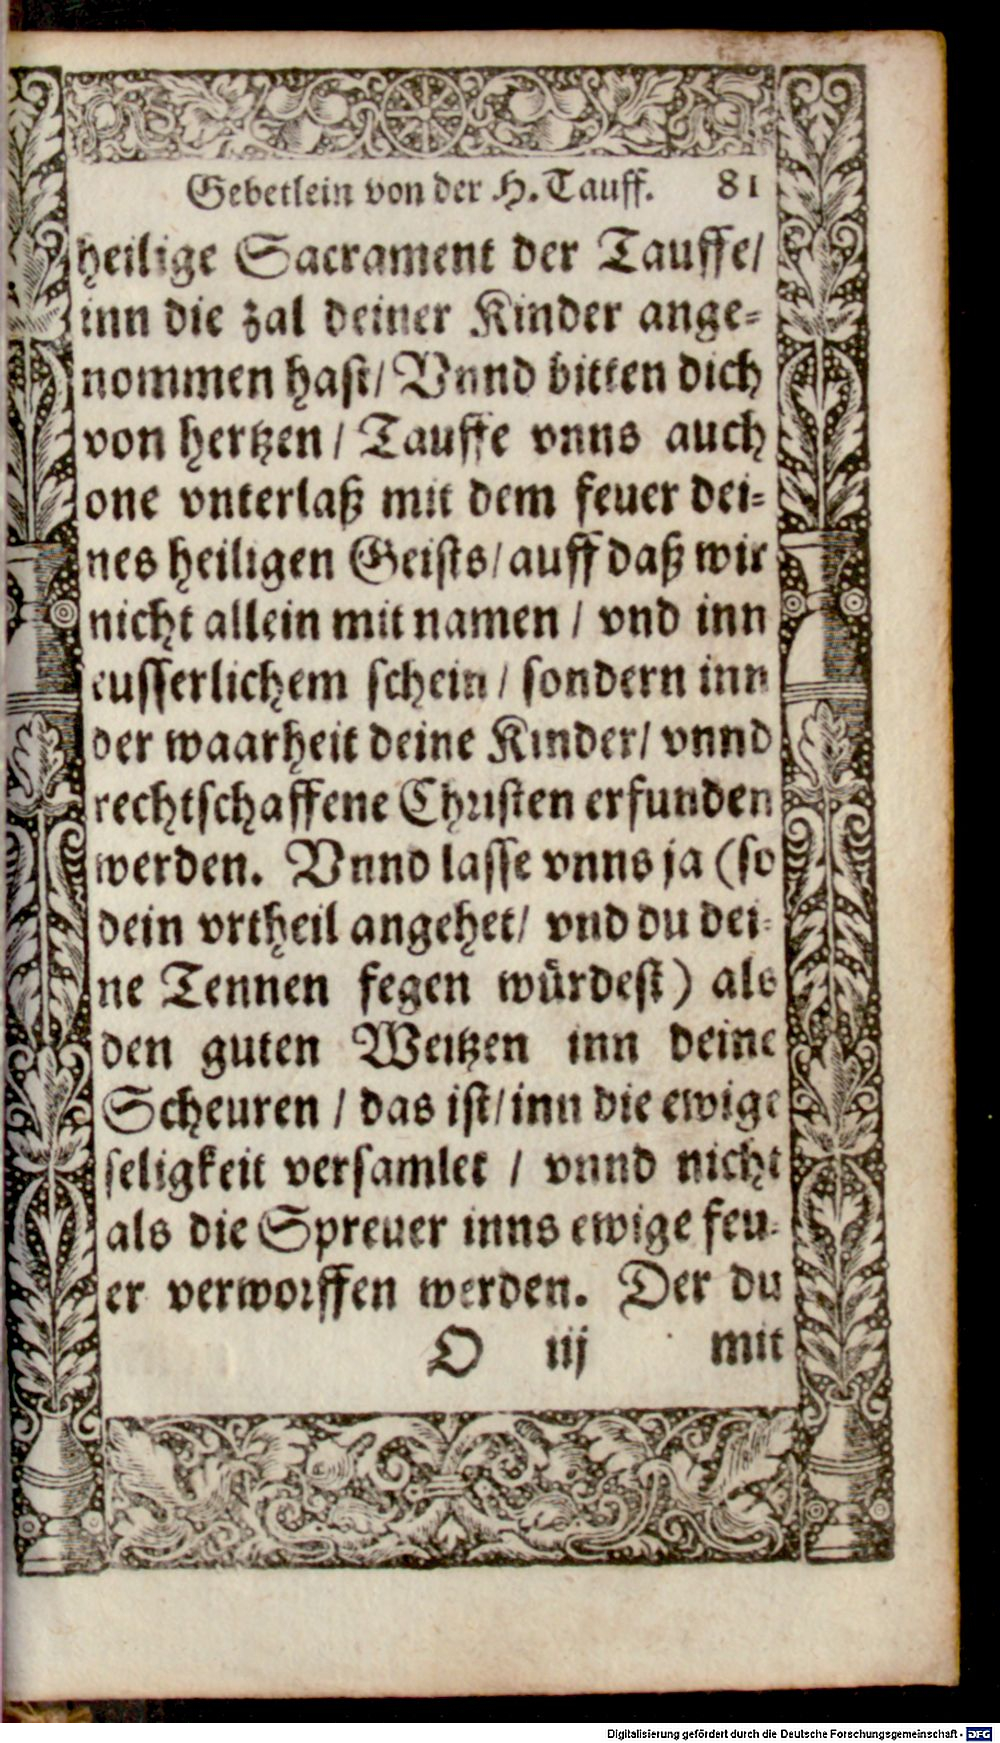 Gebetlein von der H. Tauff. 81
heilige Sacrament der Tauffe/
inn die zal deiner Kinder ange=
nommen hast/ Vnnd bitten dich
von hertzen / Tauffe vnns auch
one vnterlaß mit dem feuer dei=
nes heiligen Geists/ auff daß wir
nicht allein mit namen / vnd inn
eusserlichem schein / sondern inn
der waarheit deine Kinder/ vnnd
rechtschaffene Christen erfunden
werden. Vnnd lasse vnns ja (so
dein vrtheil angehet/ vnd du dei=
ne Tennen fegen würdest) als
den guten Weitzen inn deine
Scheuren / das ist/ inn die ewige
seligkeit versamlet / vnnd nicht
als die Spreuer inns ewige feu=
er verworffen werden. Der du
O iij mit
Digitalisierung gefördert durch die Deutsche Forschungsgemeinschaft - DFG